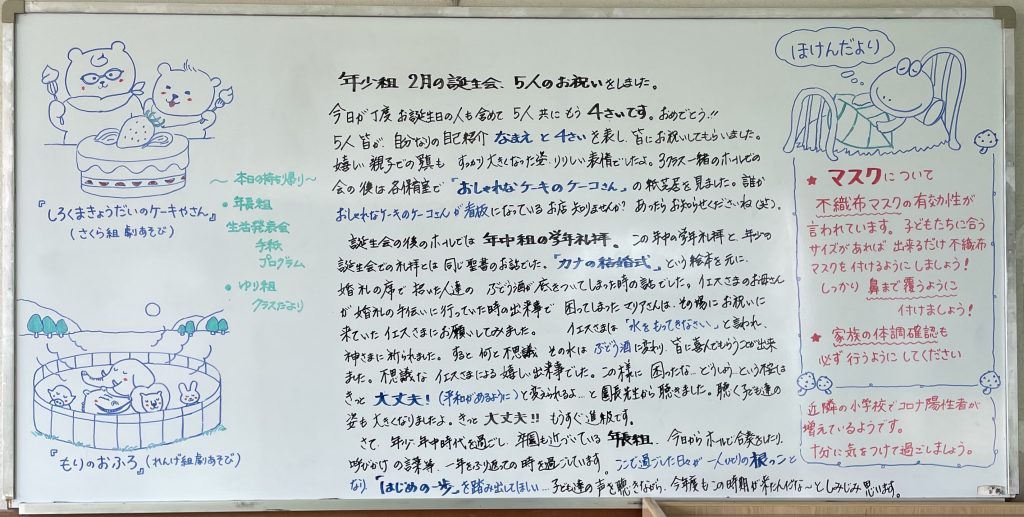 『しろくまきょうだいのケーキやさん』
(さくら組 劇あそび)
『もりのおふろ』(れんげ組劇あそび)
～本日の持ち帰り～
・年長組
生活発表会
手紙
プログラム
・ゆり組
クラスだより
年少組 2月の誕生会、5人のお祝いをしました。
今日が丁度 お誕生日の人も含めて 5人共にもう 4さいです。おめでとう!!
5人皆が、自分なりの自己紹介 なまえ と 4さい を表し、皆にお祝いしてもらいました。
嬉しい 親子での も すっかり大きくなった姿、りりしい表情でしたよ。3クラス一緒のホールでの
会の後は各保育室で「おしゃれなケーキのケーコさん」の紙芝居を見ました。誰か
おしゃれなケーキのケーコさんが看板になっているお店 知りませんか? あったらお知らせくださいね
誕生会の後のホールでは 年中組の学年礼拝。この年中の学年礼拝と、年少の
誕生会での礼拝とは 同じ聖書のお話でした。「カナの結婚式」という絵本を元に、
婚礼の席で 招いた人達の ぶどう酒が底をついてしまった時の話でした。イエスさまのお母さん
が婚礼の手伝いに行っていた時の出来事で 困ってしまったマリアさんは、その場にお祝いに
来ていたイエスさまにお願いしてみました。 イエスさまは「水をもってきなさい」と言われ、
神さまに祈られました。すると何と不思議 その水はぶどう酒に変わり、皆に喜んでもらうことが出来
ました。不思議な イエスさまによる嬉しい出来事でした。この様に 困ったな…どうしよう…という事は
きっと 大丈夫!(平和があるように)と変えられるよ…と園長先生から聴きました。聴く子ども達の
姿も 大きくなりましたよ。きっと 大丈夫!! もうすぐ進級です。
さて、年少・年中時代を過ごし、卒園も近づいている 年長組、今日からホールで合奏をしたり、
呼びかけの 一年をふり返っての時を過ごしています。ここで過ごした日々が一人ひとりの根っこと
なり「はじめの一歩」を踏み出してほしい…子ども達の声を聴きながら、今年度もこの時期が来たんだな～としみじみ思います。
ほけんだより
★ マスクについて
不織布マスクの有効性が
言われています。子どもたちに合う
サイズがあれば 出来るだけ 不織布
マスクを付けるように しましょう!
しっかり 鼻まで覆うように
付けましょう!
★ 家族の体調確認も
必ず 行うように してください
近隣の小学校でコロナ陽性者が
増えているようです。
十分に気をつけて過ごしましょう。